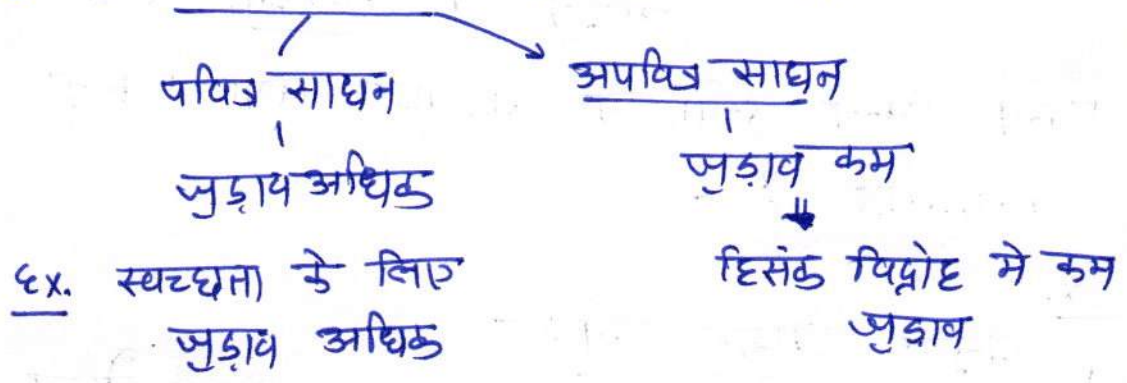 पवित्र साधन
जुड़ाव अधिक
Ex. स्वच्छता के लिए
जुड़ाव अधिक
अपवित्र साधन
जुड़ाव कम
हिसंक विद्रोह मे कम
जुडाव